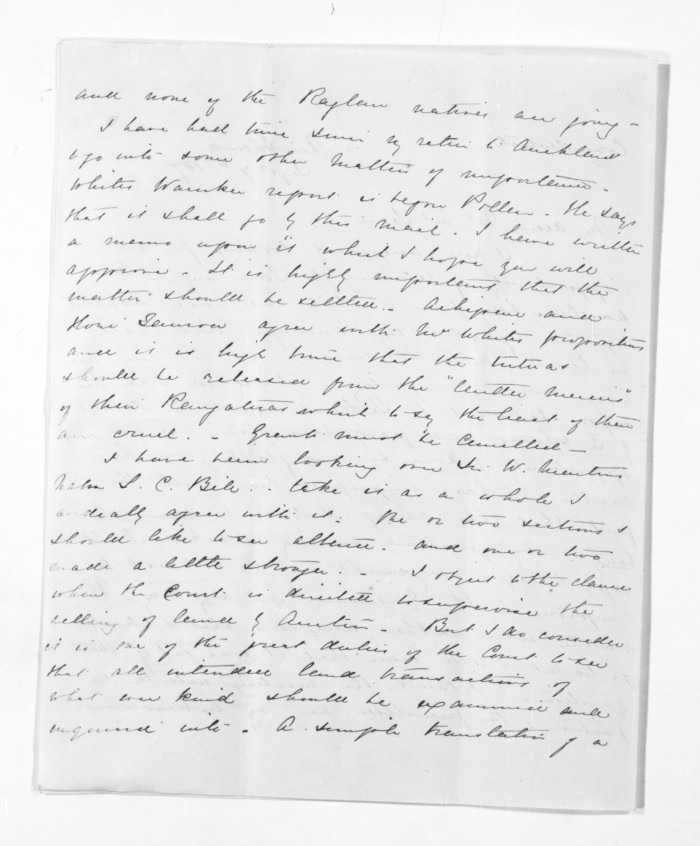 and none of the Raglan natives are going -
I have had time since my return to Auckland
to go into some other matters of importance -
Whites report is before Pollen. He says
that it shall go by this mail. I have written
a memo upon it which I hope you will
approve - It is highly important that the
matter should be settled - and
Hori agree with Mr Whites propositions
and it is high time that the tutuas
should be released from the "tender mercies"
of their Rangatiras which to say the least of them
are cruel. - Grants must be cancelled -
I have been looking over Sir W. Martins
L. C. Bill. take it as a whole I
agree with it. One or two sections I
should like to see altered. and one or two
made a little stronger. - I object to the clause
when the Court is directed to supervise the
selling of land by Auction - But I do consider
it is one of the great duties of the Court to see
that all intended land transactions of
what ever kind should be examined and
inquired into - A simple translation of a